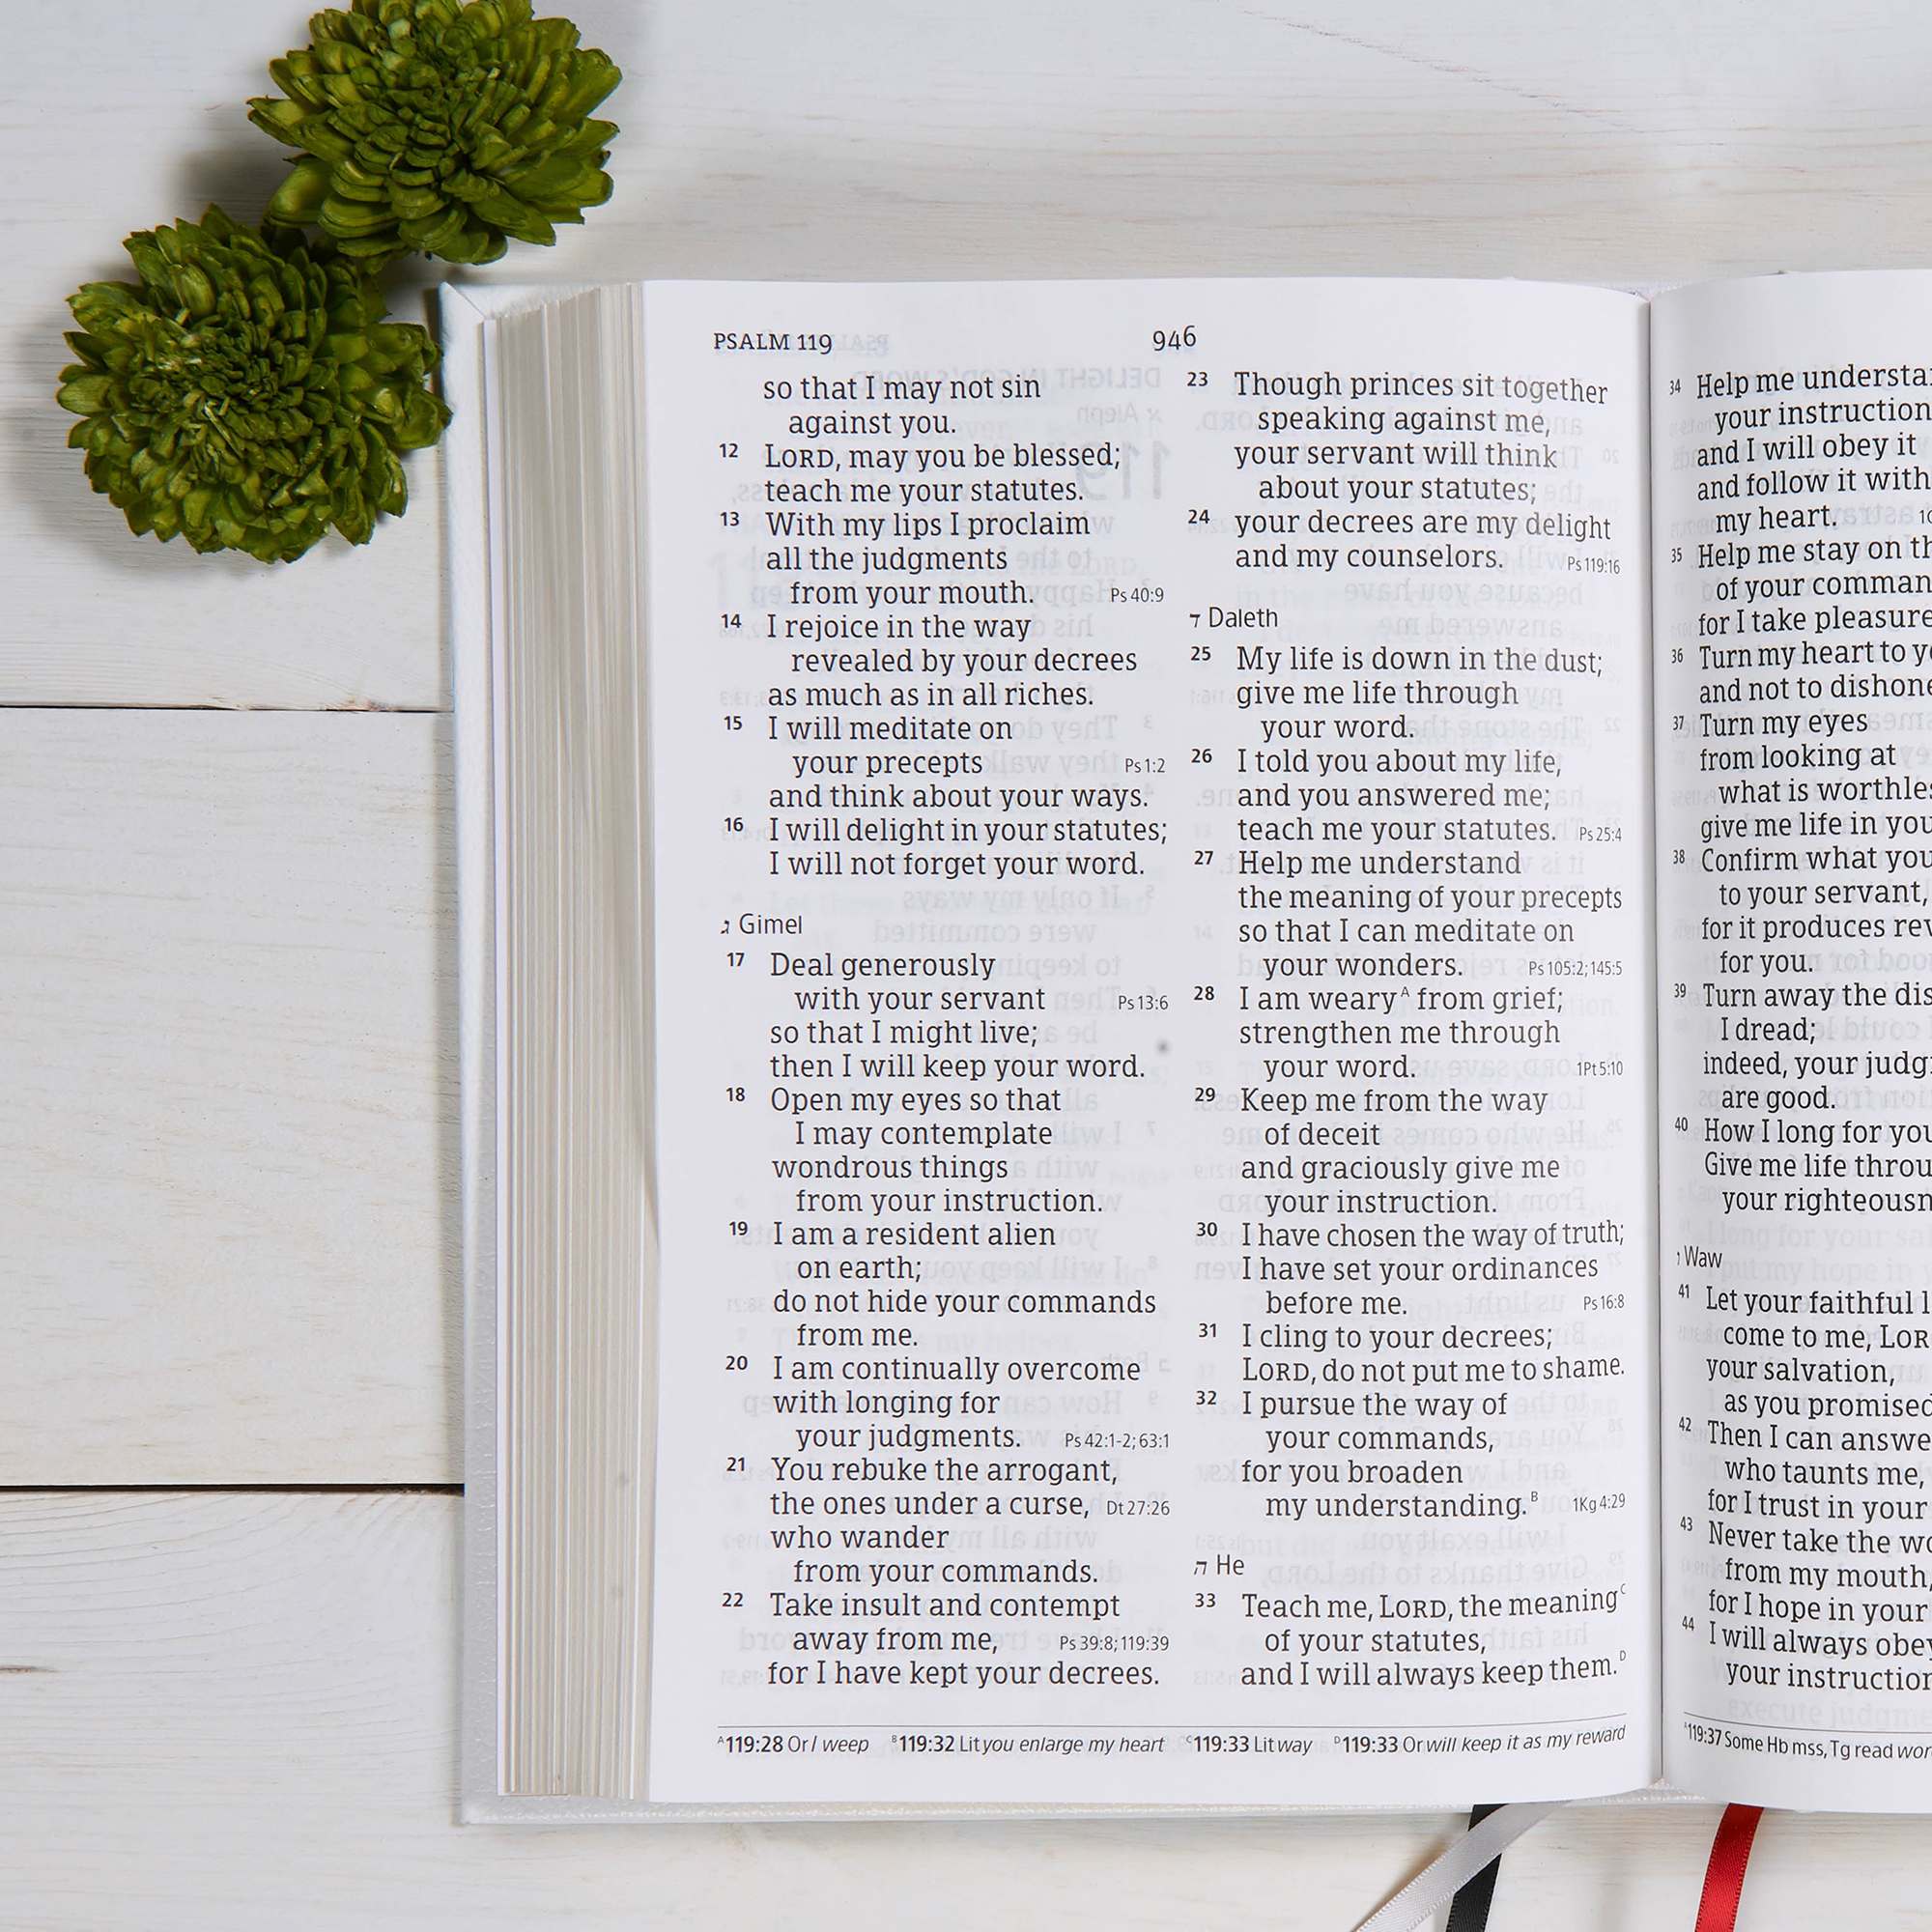 PSALM 119
946
so that I may not sin
against you.
12 LORD, may you be blessed;
teach me your statutes.
13 With my lips I proclaim
all the judgments
from your mouth. Ps 40:9
14 I rejoice in the way
revealed by your decrees
as much as in all riches.
15 I will meditate on
your precepts Ps 1:2
and think about your ways.
16 I will delight in your statutes;
I will not forget your word.
ג Gimel
17 Deal generously
with your servant Ps 13:6
so that I might live;
then I will keep your word.
18 Open my eyes so that
I may contemplate
wondrous things
from your instruction.
19 I am a resident alien
on earth;
do not hide your commands
from me.
20 I am continually overcome
with longing for
your judgments. Ps 42:1-2; 63:1
21 You rebuke the arrogant,
the ones under a curse, Dt 27:26
who wander
from your commands.
22 Take insult and contempt
away from me, Ps 39:8; 119:39
for I have kept your decrees.
23 Though princes sit together
speaking against me,
your servant will think
about your statutes;
24 your decrees are my delight
and my counselors. Ps 119:16
ד Daleth
25 My life is down in the dust;
give me life through
your word.
26 I told you about my life,
and you answered me;
teach me your statutes. Ps 25:4
27 Help me understand
the meaning of your precepts
so that I can meditate on
your wonders. Ps 105:2; 145:5
28 I am weary A from grief;
strengthen me through
your word. 1Pt 5:10
29 Keep me from the way
of deceit
and graciously give me
your instruction.
30 I have chosen the way of truth;
I have set your ordinances
before me. Ps 16:8
31 I cling to your decrees;
LORD, do not put me to shame.
32 I pursue the way of
your commands,
for you broaden
my understanding. B 1Kg 4:29
ה He
33 Teach me, LORD, the meaning C
of your statutes,
and I will always keep them. D
A 119:28 Or I weep B 119:32 Lit you enlarge my heart C 119:33 Lit way D 119:33 Or will keep it as my reward
34 Help me
your instruction
and I will obey it
and follow it with
my heart.
35 Help me stay on
of your
for I take pleasure
36 Turn my heart to
and not to
37 Turn my eyes
from looking at
what is
give me life in
38 Confirm what
to your servant,
for it produces
for you.
39 Turn away the
I dread;
indeed, your
are good.
40 How I long for
Give me life
your
ו Waw
41 Let your faithful
come to me,
your salvation,
as you promised
42 Then I can
who taunts me,
for I trust in your
43 Never take the
from my mouth,
for I hope in your
44 I will always
your
A 119:37 Some Hb mss, Tg read